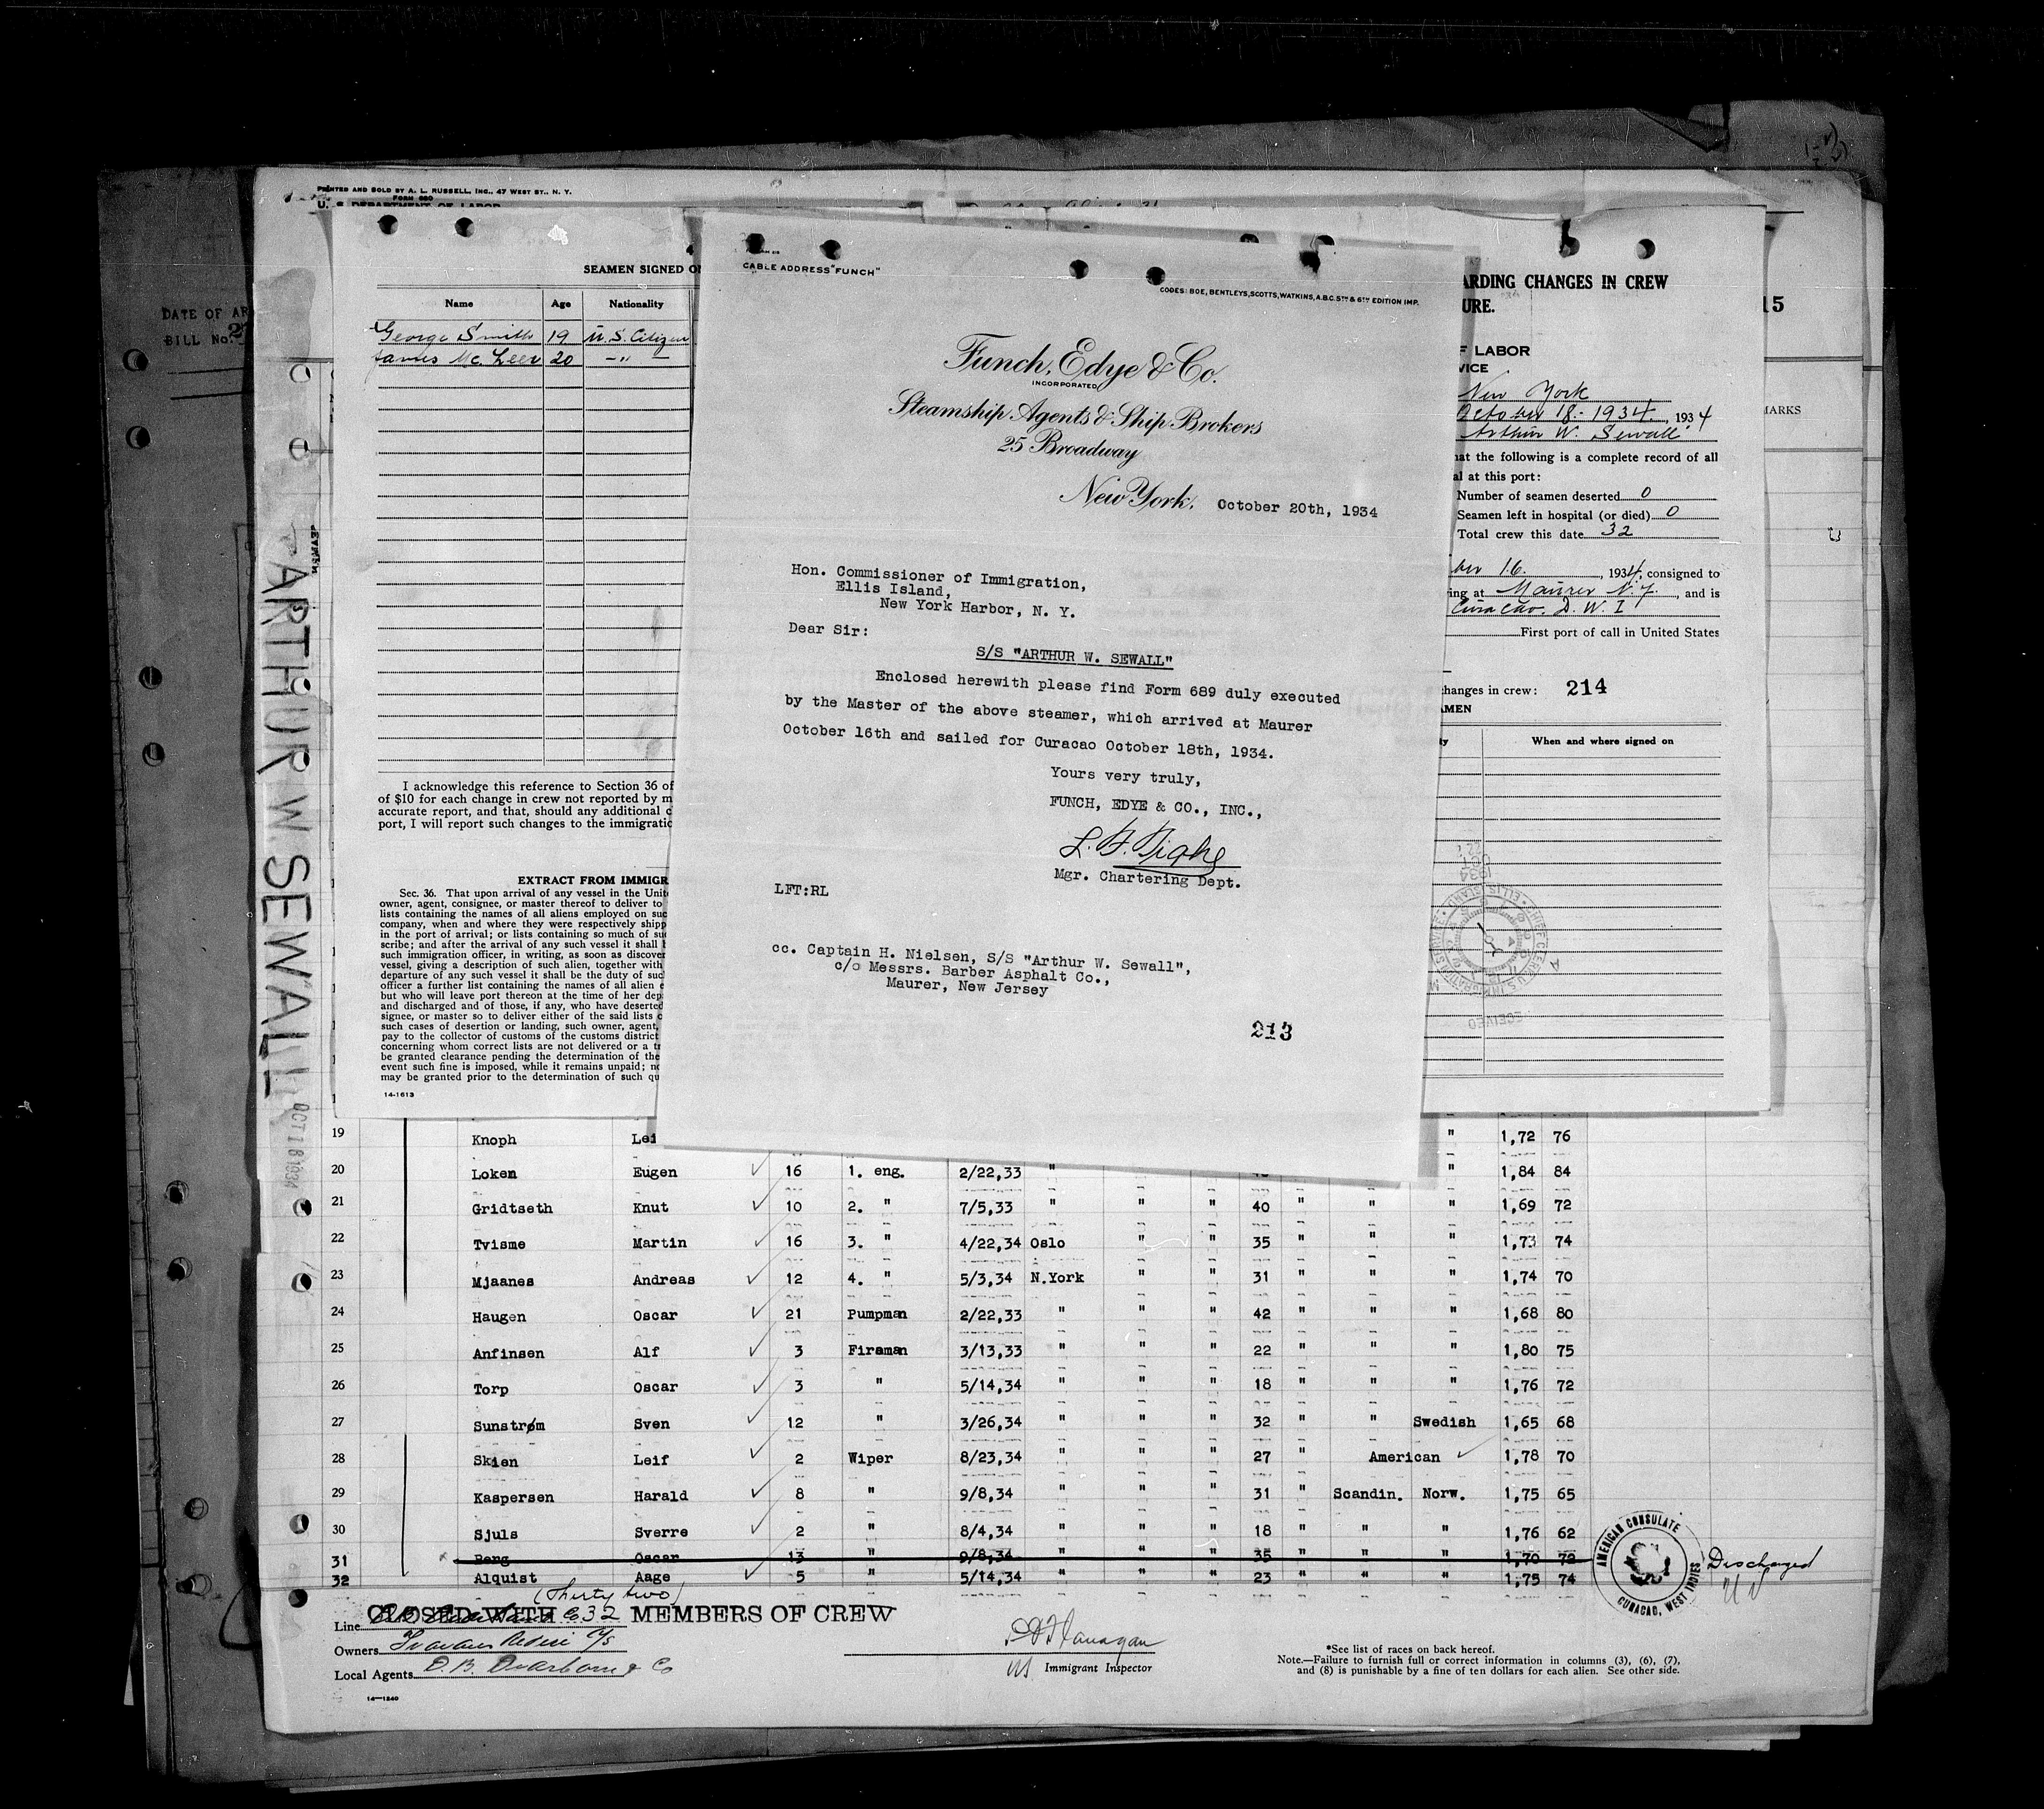 PRINTED AND SOLD BY A. L. RUSSELL, INC., 47 WEST ST., N. Y.
FORM 680
U. S. DEPARTMENT OF LABOR
DATE OF AR
BILL No.
ARTHUR W. SEWALL
OCT 18 1934
SEAMEN SIGNED O
Name Age Nationality
George Smith 19 U.S. Citizen
James Mc. Leer 20 -"-
I acknowledge this reference to Section 36 of
of $10 for each change in crew not reported by m
accurate report, and that, should any additional c
port, I will report such changes to the immigratic
EXTRACT FROM IMMIGR
Sec. 36. That upon arrival of any vessel in the Unit
owner, agent, consignee, or master thereof to deliver to
lists containing the names of all aliens employed on suc
company, when and where they were respectively shipp
in the port of arrival; or lists containing so much of su
scribe; and after the arrival of any such vessel it shall b
such immigration officer, in writing, as soon as discover
vessel, giving a description of such alien, together with
departure of any such vessel it shall be the duty of suc
officer a further list containing the names of all alien e
but who will leave port thereon at the time of her dep
and discharged and of those, if any, who have deserted
signee, or master so to deliver either of the said lists c
such cases of desertion or landing, such owner, agent,
pay to the collector of customs of the customs district
concerning whom correct lists are not delivered or a tr
be granted clearance pending the determination of the
event such fine is imposed, while it remains unpaid; no
may be granted prior to the determination of such qu
14-1613
CABLE ADDRESS "FUNCH"
CODES: BOE, BENTLEYS, SCOTTS, WATKINS, A.B.C. 5TH & 6TH EDITION IMP.
Funch, Edye & Co.
INCORPORATED
Steamship Agents & Ship Brokers
25 Broadway
New York, October 20th, 1934
Hon. Commissioner of Immigration,
Ellis Island,
New York Harbor, N. Y.
Dear Sir:
S/S "ARTHUR W. SEWALL"
Enclosed herewith please find Form 689 duly executed
by the Master of the above steamer, which arrived at Maurer
October 16th and sailed for Curacao October 18th, 1934.
Yours very truly,
FUNCH, EDYE & CO., INC.,
L. F. Tighe
Mgr. Chartering Dept.
LFT:RL
cc. Captain H. Nielsen, S/S "Arthur W. Sewall",
c/o Messrs. Barber Asphalt Co.,
Maurer, New Jersey
213
ARDING CHANGES IN CREW
URE.
15
F LABOR
VICE
New York
October 18.- 1934, 1934
Arthur W. Sewall
MARKS
hat the following is a complete record of all
al at this port:
Number of seamen deserted 0
Seamen left in hospital (or died) 0
Total crew this date 32
ber 16., 1934, consigned to
ing at Maurer N.J., and is
Curacao. D. W. I
First port of call in United States
changes in crew: 214
AMEN
ty When and where signed on
19 Knoph Lei " 1,72 76
20 Loken Eugen 16 1. eng. 2/22,33 " " 1,84 84
21 Gridtseth Knut 10 2. " 7/5,33 " " " 40 " " " 1,69 72
22 Tvisme Martin 16 3. " 4/22,34 Oslo " " 35 " " " 1,73 74
23 Mjaanes Andreas 12 4. " 5/3,34 N.York " " 31 " " " 1,74 70
24 Haugen Oscar 21 Pumpman 2/22,33 " " " 42 " " " 1,68 80
25 Anfinsen Alf 3 Fireman 3/13,33 " " " 22 " " " 1,80 75
26 Torp Oscar 3 " 5/14,34 " " " 18 " " " 1,76 72
27 Sunstrøm Sven 12 " 3/26,34 " " " 32 " " Swedish 1,65 68
28 Skien Leif 2 Wiper 8/23,34 " " " 27 " American 1,78 70
29 Kaspersen Harald 8 " 9/8,34 " " " 31 " Scandin. Norw. 1,75 65
30 Sjuls Sverre 2 " 8/4,34 " " " 18 " " " 1,76 62
31 Berg Oscar 13 " 9/8,34 " " " 35 " " " 1,70 72 Discharged
32 Alquist Aage 5 " 5/14,34 " " " 23 " " " 1,75 74
AMERICAN CONSULATE
CURACAO, WEST INDIES
(Thirty two)
CLOSED WITH 32 MEMBERS OF CREW
Line
Owners
Local Agents D. B. Dearborn & Co
Immigrant Inspector
*See list of races on back hereof.
Note.—Failure to furnish full or correct information in columns (3), (6), (7),
and (8) is punishable by a fine of ten dollars for each alien. See other side.
14-1240